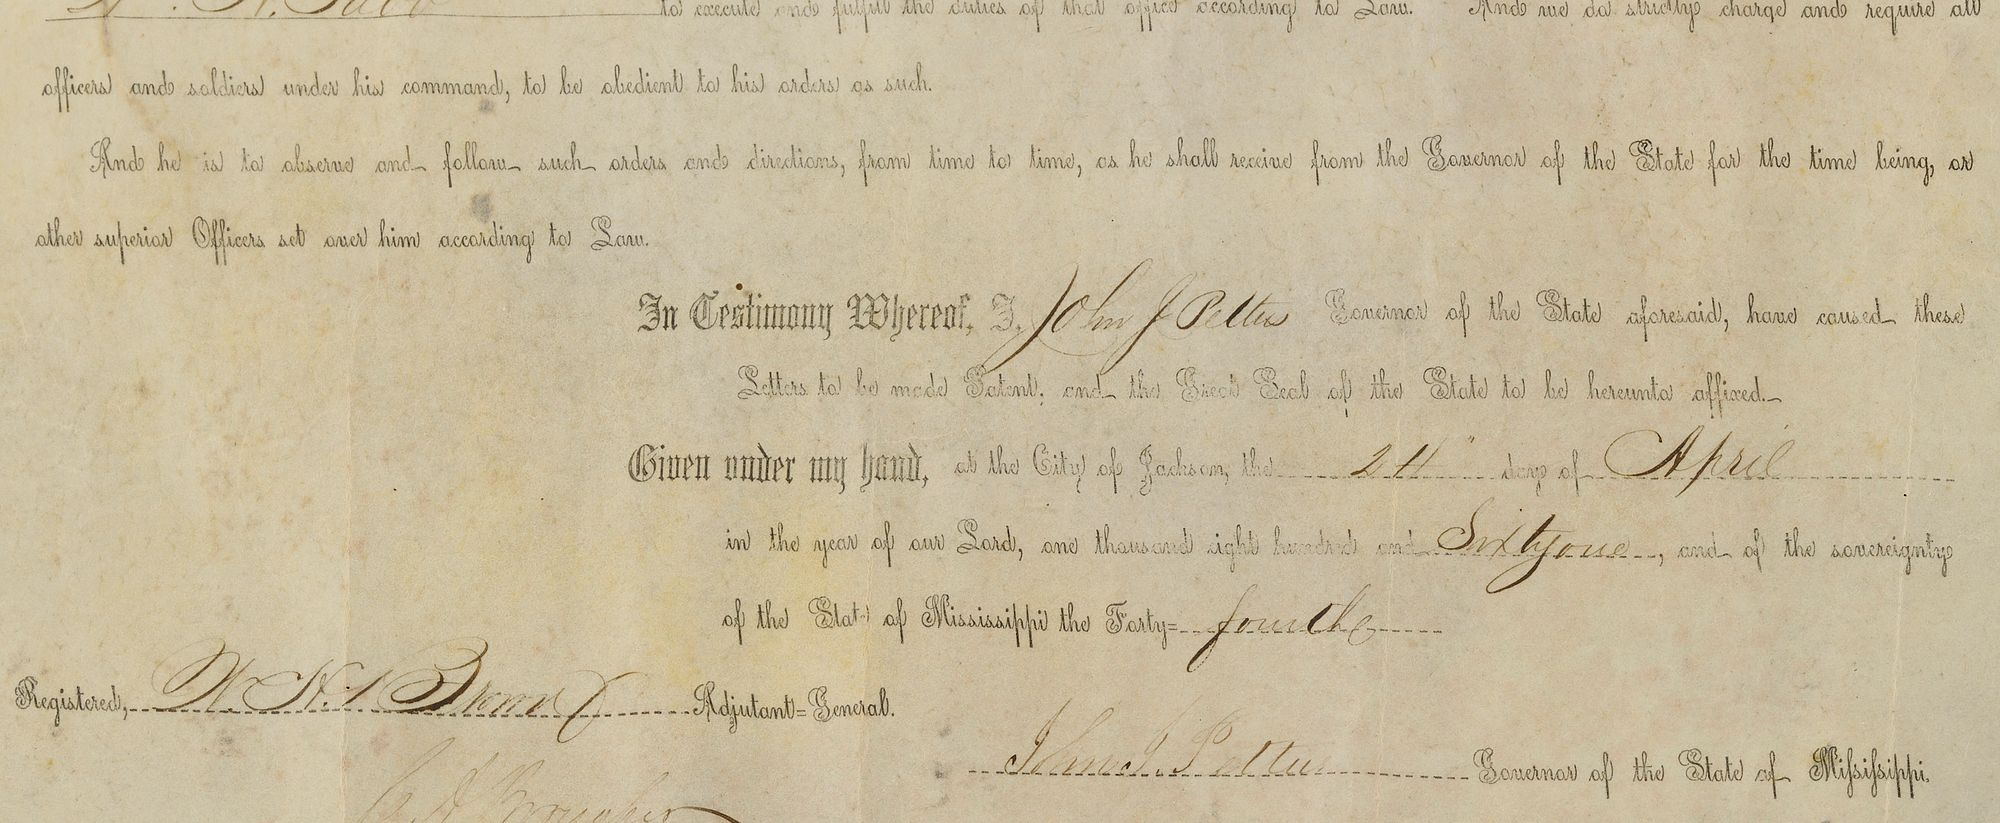 to execute and fulfill the duties of that office according to Law. And we do strictly charge and require all
officers and soldiers under his command, to be obedient to his orders as such.
And he is to observe and follow such orders and directions, from time to time, as he shall receive from the Governor of the State for the time being, or
other superior Officers set over him according to Law.
In Testimony Whereof, I, John J Pettus Governor of the State aforesaid, have caused these
Letters to be made Patent, and the Great Seal of the State to be hereunto affixed.
Given under my hand, at the City of Jackson, the 24" day of April
in the year of our Lord, one thousand eight hundred and Sixtyone, and of the sovereignty
of the State of Mississippi the Forty=fourth
Registered, W. H. Brown Adjutant=General.
John J. Pettus Governor of the State of Miſsiſsippi.